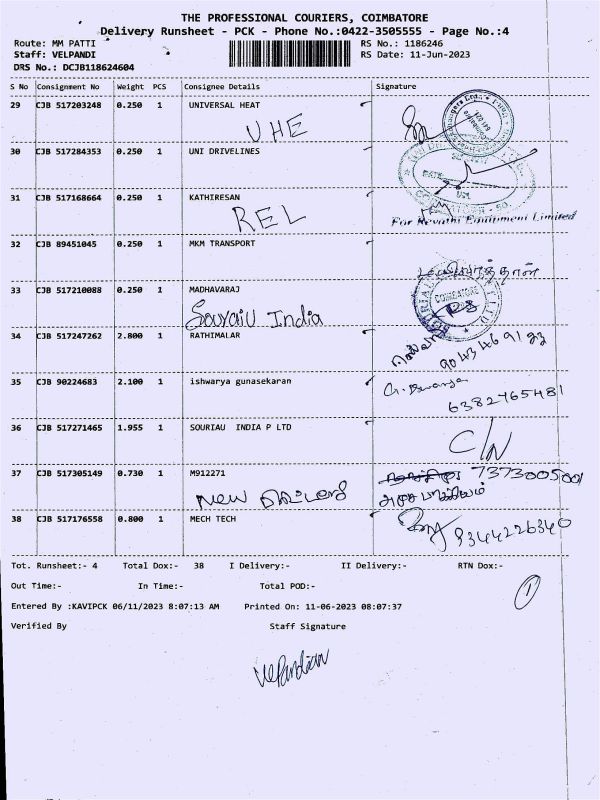 THE PROFESSIONAL COURIERS, COIMBATORE
Delivery Runsheet - PCK - Phone No.:0422-3505555 - Page No.:4
Route: MM PATTI RS No.: 1186246
Staff: VELPANDI RS Date: 11-Jun-2023
DRS No.: DCJB118624604
S No Consignment No Weight PCS Consignee Details Signature
29 CJB 517203248 0.250 1 UNIVERSAL HEAT
UHE
30 CJB 517284353 0.250 1 UNI DRIVELINES
31 CJB 517168664 0.250 1 KATHIRESAN
REL
For Revathi Equipment Limited
32 CJB 89451045 0.250 1 MKM TRANSPORT
33 CJB 517210088 0.250 1 MADHAVARAJ
COIMBATORE
Souraiu India
34 CJB 517247262 2.800 1 RATHIMALAR
9043469122
35 CJB 90224683 2.100 1 ishwarya gunasekaran
6382765481
36 CJB 517271465 1.955 1 SOURIAU INDIA P LTD
C/N
37 CJB 517305149 0.730 1 M912271
7373005001
New
38 CJB 517176558 0.800 1 MECH TECH
9344226340
Tot. Runsheet:- 4 Total Dox:- 38 I Delivery:- II Delivery:- RTN Dox:-
Out Time:- In Time:- Total POD:-
1
Entered By :KAVIPCK 06/11/2023 8:07:13 AM Printed On: 11-06-2023 08:07:37
Verified By Staff Signature
Velpandian